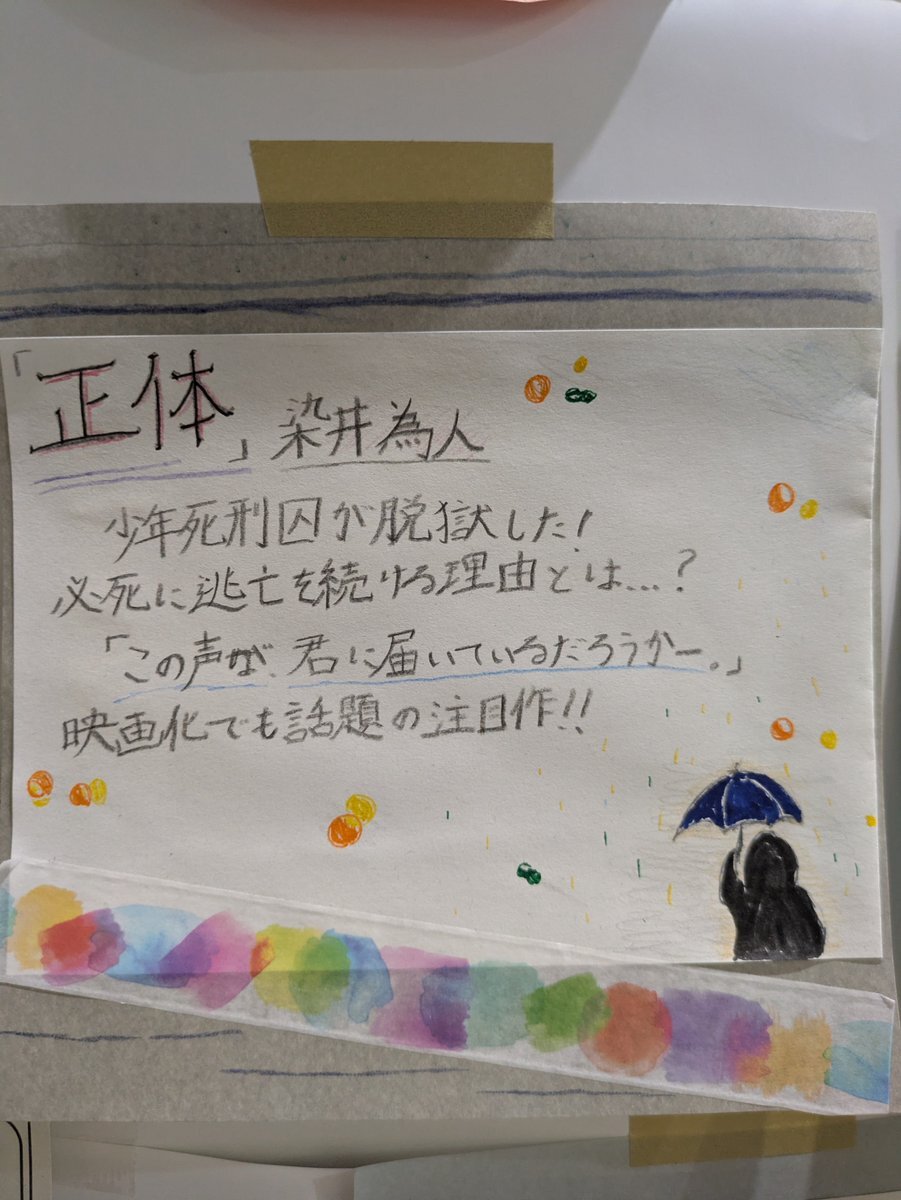 「正体」 染井為人
少年死刑囚が脱獄した!
必死に逃亡を続ける理由とは…?
「この声が、君に届いているだろうかー。」
映画化でも話題の注目作!!